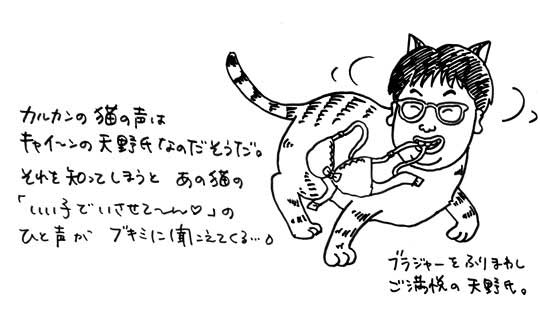 カルカンの猫の声は
キャイ〜ンの天野氏なのだそうだ。
それを知ってしまうと あの猫の
「いい子でいさせて〜ん♡」の
ひと声が ブキミに聞こえてくる…。
ブラジャーをふりまわし
ご満悦の天野氏。